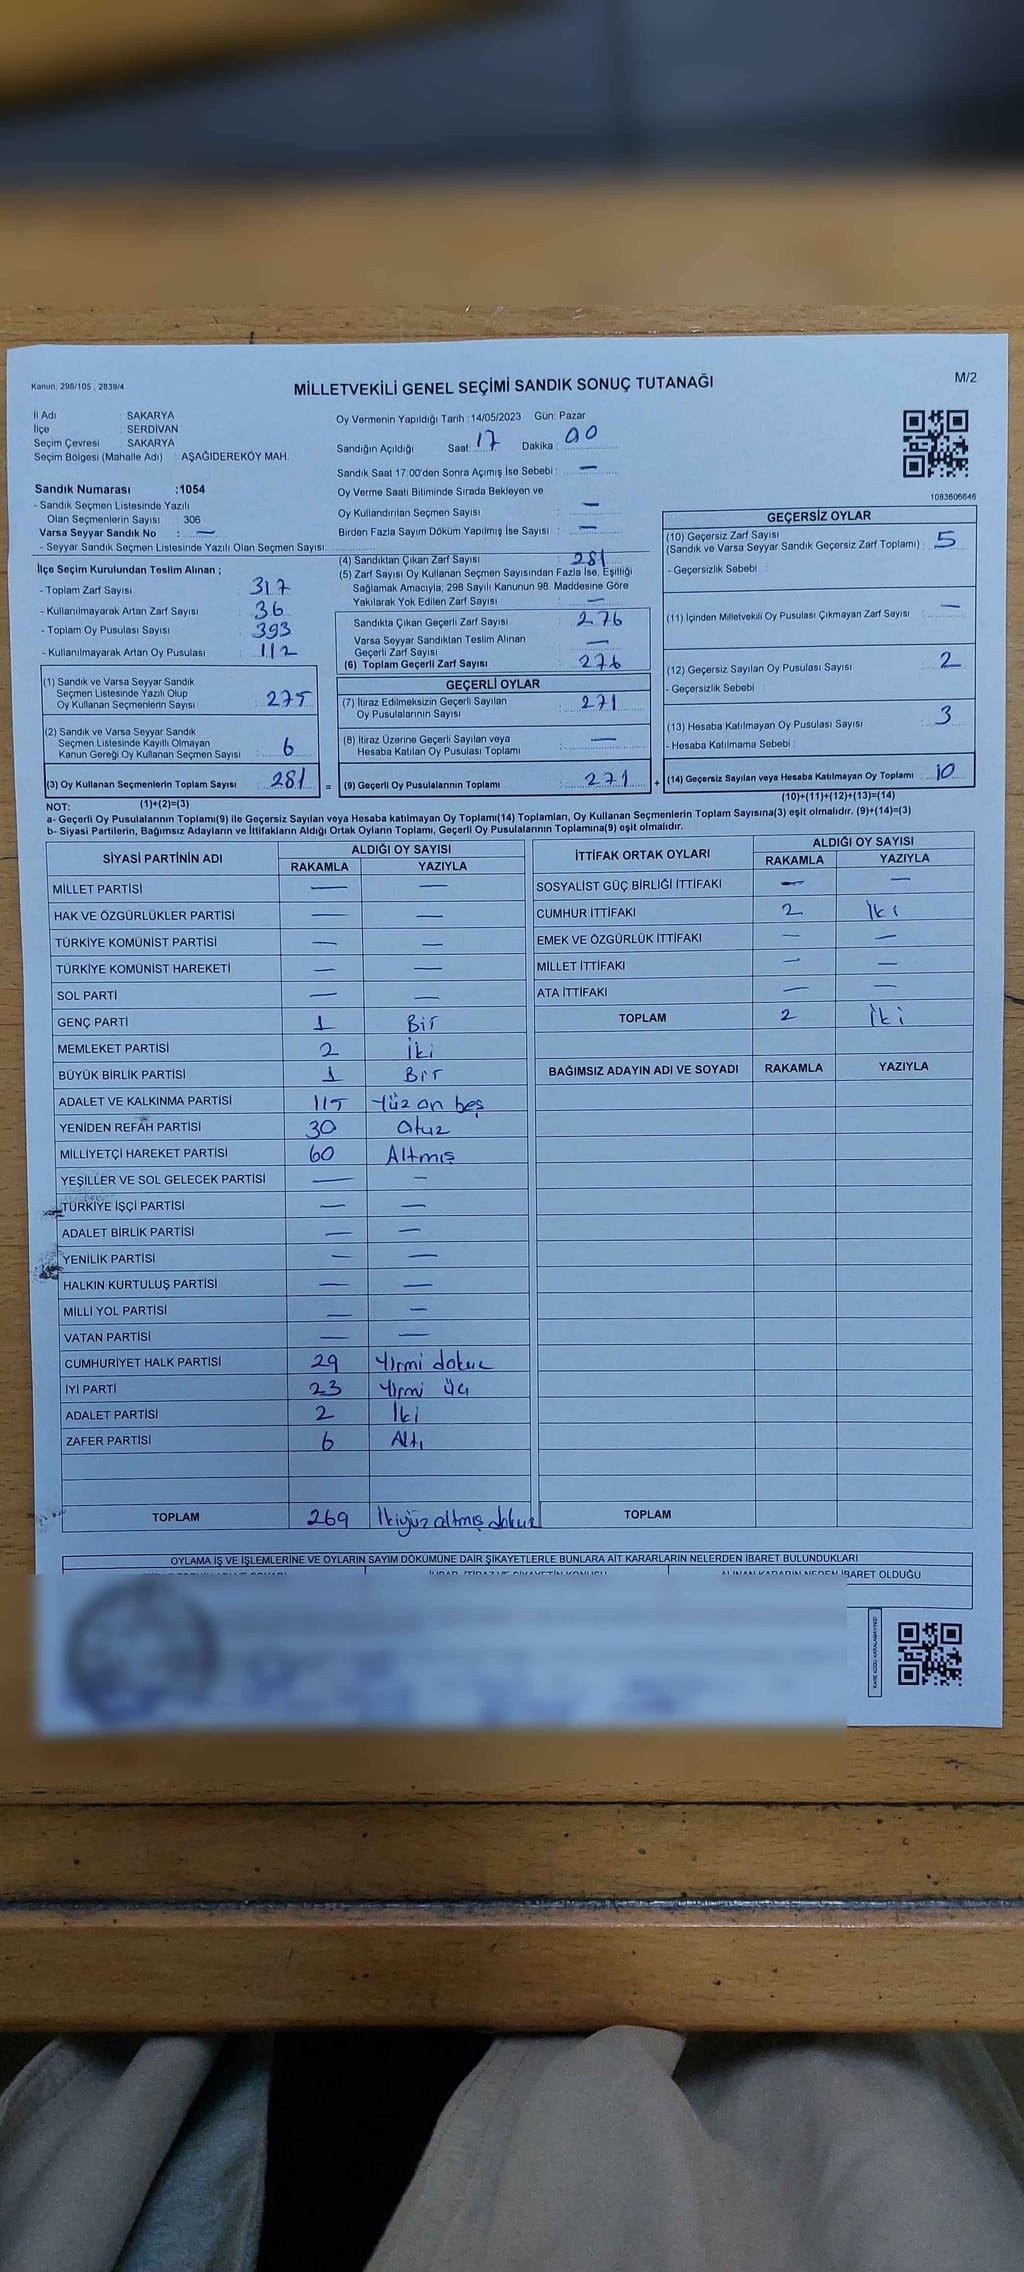 Kanun: 298/105 , 2839/4
MİLLETVEKİLİ GENEL SEÇİMİ SANDIK SONUÇ TUTANAĞI
M/2
İl Adı : SAKARYA
İlçe : SERDİVAN
Seçim Çevresi : SAKARYA
Seçim Bölgesi (Mahalle Adı) : AŞAĞIDEREKÖY MAH.
Sandık Numarası :1054
- Sandık Seçmen Listesinde Yazılı
Olan Seçmenlerin Sayısı : 306
Varsa Seyyar Sandık No : —
- Seyyar Sandık Seçmen Listesinde Yazılı Olan Seçmen Sayısı:
İlçe Seçim Kurulundan Teslim Alınan ;
- Toplam Zarf Sayısı : 317
- Kullanılmayarak Artan Zarf Sayısı : 36
- Toplam Oy Pusulası Sayısı : 393
- Kullanılmayarak Artan Oy Pusulası : 112
(1) Sandık ve Varsa Seyyar Sandık
Seçmen Listesinde Yazılı Olup
Oy Kullanan Seçmenlerin Sayısı : 275
(2) Sandık ve Varsa Seyyar Sandık
Seçmen Listesinde Kayıtlı Olmayan
Kanun Gereği Oy Kullanan Seçmen Sayısı : 6
(3) Oy Kullanan Seçmenlerin Toplam Sayısı : 281
Oy Vermenin Yapıldığı Tarih :14/05/2023 Gün: Pazar
Sandığın Açıldığı Saat: 17 Dakika : 00
Sandık Saat 17:00'den Sonra Açımış İse Sebebi : —
Oy Verme Saati Bitiminde Sırada Bekleyen ve
Oy Kullandırılan Seçmen Sayısı : —
Birden Fazla Sayım Döküm Yapılmış İse Sayısı : —
(4) Sandıktan Çıkan Zarf Sayısı : 281
(5) Zarf Sayısı Oy Kullanan Seçmen Sayısından Fazla İse, Eşitliği
Sağlamak Amacıyla; 298 Sayılı Kanunun 98. Maddesine Göre
Yakılarak Yok Edilen Zarf Sayısı : —
Sandıkta Çıkan Geçerli Zarf Sayısı : 276
Varsa Seyyar Sandıktan Teslim Alınan
Geçerli Zarf Sayısı : —
(6) Toplam Geçerli Zarf Sayısı : 276
GEÇERLİ OYLAR
(7) İtiraz Edilmeksizin Geçerli Sayılan
Oy Pusulalarının Sayısı : 271
(8) İtiraz Üzerine Geçerli Sayılan veya
Hesaba Katılan Oy Pusulası Toplamı : —
= (9) Geçerli Oy Pusulalarının Toplamı : 271 +
1083606646
GEÇERSİZ OYLAR
(10) Geçersiz Zarf Sayısı
(Sandık ve Varsa Seyyar Sandık Geçersiz Zarf Toplamı) : 5
- Geçersizlik Sebebi :
(11) İçinden Milletvekili Oy Pusulası Çıkmayan Zarf Sayısı : —
(12) Geçersiz Sayılan Oy Pusulası Sayısı : 2
- Geçersizlik Sebebi :
(13) Hesaba Katılmayan Oy Pusulası Sayısı : 3
- Hesaba Katılmama Sebebi :
(14) Geçersiz Sayılan veya Hesaba Katılmayan Oy Toplamı : 10
NOT: (1)+(2)=(3) (10)+(11)+(12)+(13)=(14)
a- Geçerli Oy Pusulalarının Toplamı(9) ile Geçersiz Sayılan veya Hesaba katılmayan Oy Toplamı(14) Toplamları, Oy Kullanan Seçmenlerin Toplam Sayısına(3) eşit olmalıdır. (9)+(14)=(3)
b- Siyasi Partilerin, Bağımsız Adayların ve İttifakların Aldığı Ortak Oyların Toplamı, Geçerli Oy Pusulalarının Toplamına(9) eşit olmalıdır.
SİYASİ PARTİNİN ADI ALDIĞI OY SAYISI
RAKAMLA YAZIYLA
MİLLET PARTİSİ — —
HAK VE ÖZGÜRLÜKLER PARTİSİ — —
TÜRKİYE KOMÜNİST PARTİSİ — —
TÜRKİYE KOMÜNİST HAREKETİ — —
SOL PARTİ — —
GENÇ PARTİ 1 Bir
MEMLEKET PARTİSİ 2 İki
BÜYÜK BİRLİK PARTİSİ 1 Bir
ADALET VE KALKINMA PARTİSİ 115 Yüz on beş
YENİDEN REFAH PARTİSİ 30 Otuz
MİLLİYETÇİ HAREKET PARTİSİ 60 Altmış
YEŞİLLER VE SOL GELECEK PARTİSİ — —
TÜRKİYE İŞÇİ PARTİSİ — —
ADALET BİRLİK PARTİSİ — —
YENİLİK PARTİSİ — —
HALKIN KURTULUŞ PARTİSİ — —
MİLLİ YOL PARTİSİ — —
VATAN PARTİSİ — —
CUMHURİYET HALK PARTİSİ 29 Yirmi dokuz
İYİ PARTİ 23 Yirmi üç
ADALET PARTİSİ 2 İki
ZAFER PARTİSİ 6 Altı
TOPLAM 269 İkiyüz altmış dokuz
İTTİFAK ORTAK OYLARI ALDIĞI OY SAYISI
RAKAMLA YAZIYLA
SOSYALİST GÜÇ BİRLİĞİ İTTİFAKI — —
CUMHUR İTTİFAKI 2 İki
EMEK VE ÖZGÜRLÜK İTTİFAKI — —
MİLLET İTTİFAKI — —
ATA İTTİFAKI — —
TOPLAM 2 İki
BAĞIMSIZ ADAYIN ADI VE SOYADI RAKAMLA YAZIYLA
TOPLAM
OYLAMA İŞ VE İŞLEMLERİNE VE OYLARIN SAYIM DÖKÜMÜNE DAİR ŞİKAYETLERLE BUNLARA AİT KARARLARIN NELERDEN İBARET BULUNDUKLARI
ALINAN KARARIN NEDEN İBARET OLDUĞU